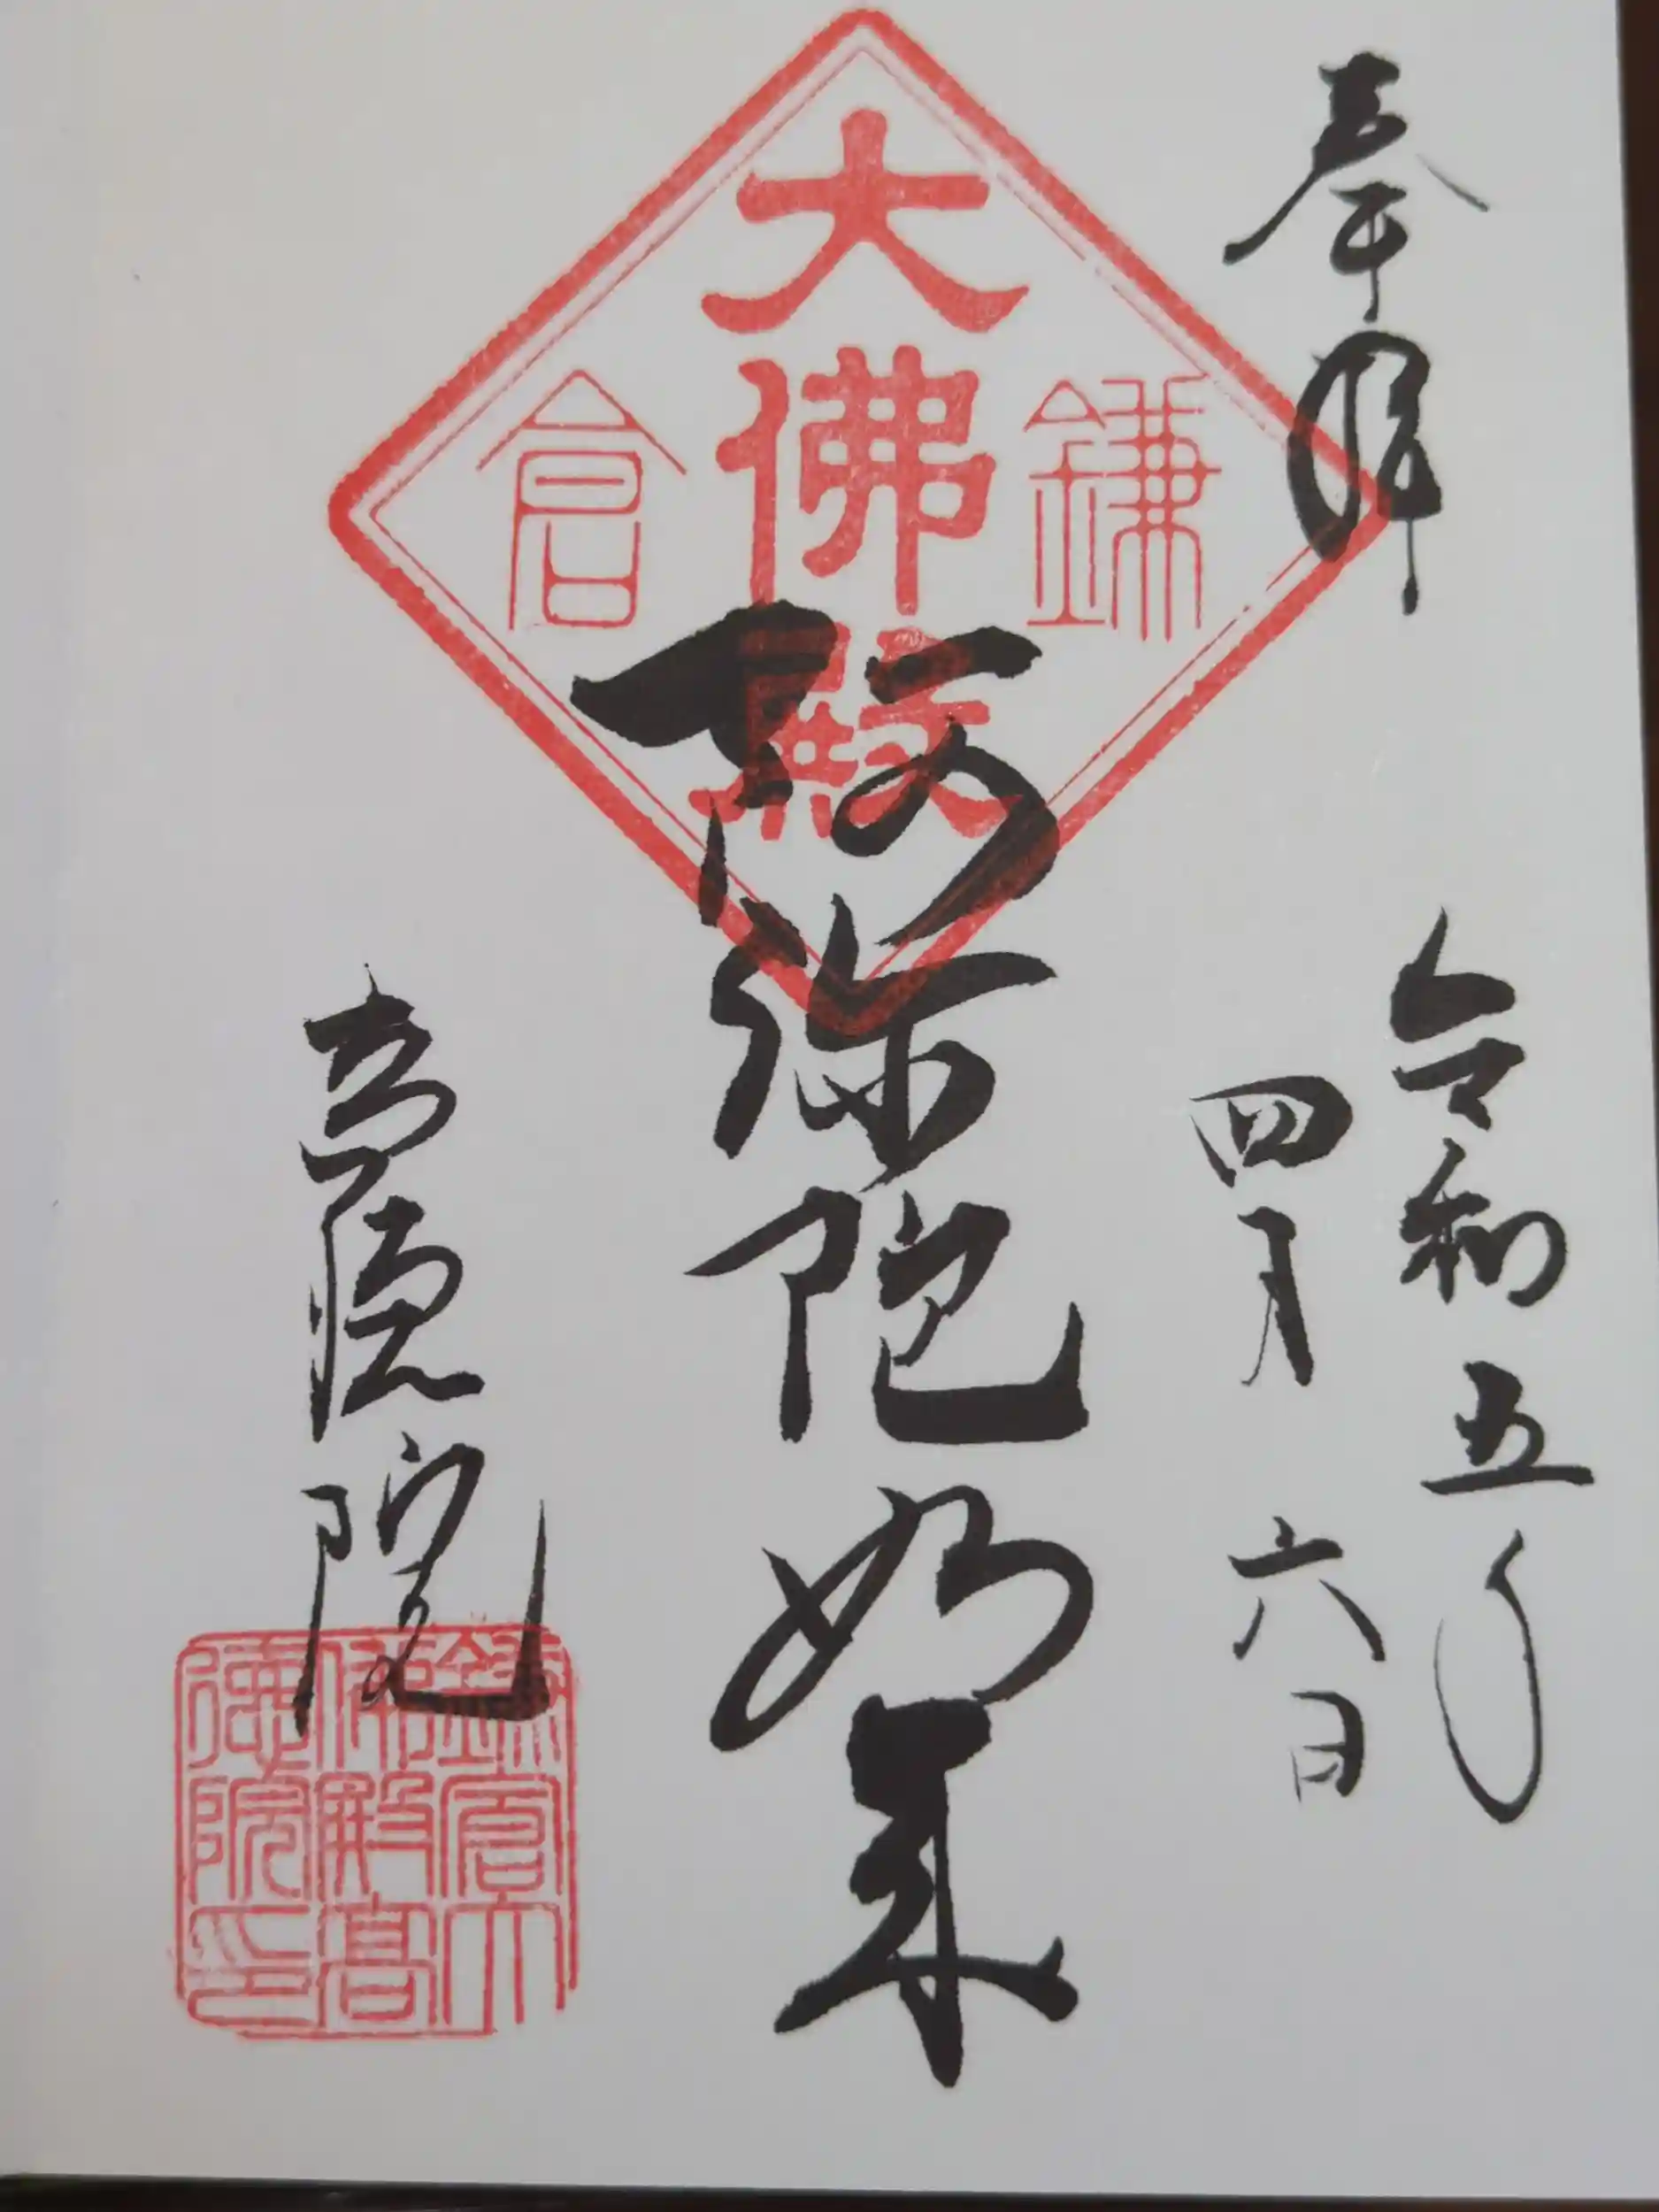 奉拝
令和五年
四月六日
鎌倉
大佛殿
阿弥陀如来
高徳院
鎌倉大
佛殿高
德院印